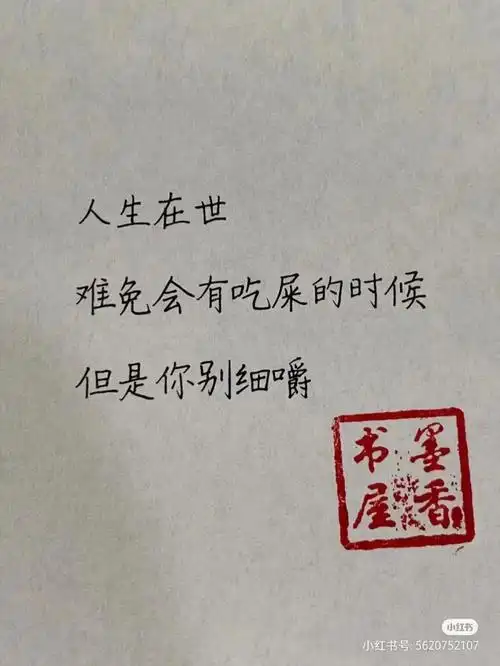 人生在世
难免会有吃屎的时候
但是你别细嚼
墨香
书屋
小红书
小红书号: 5620752107